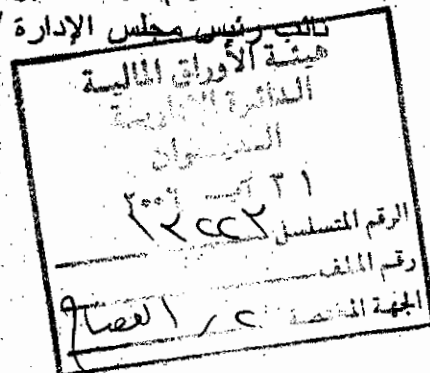 نائب رئيس مجلس الإدارة /
هيئة الأوراق المالية
الدائرة الإدارية
الديوان
٣١ آب ٢٠٠٦
الرقم المتسلسل
رقم الملف
الجهة المختصة